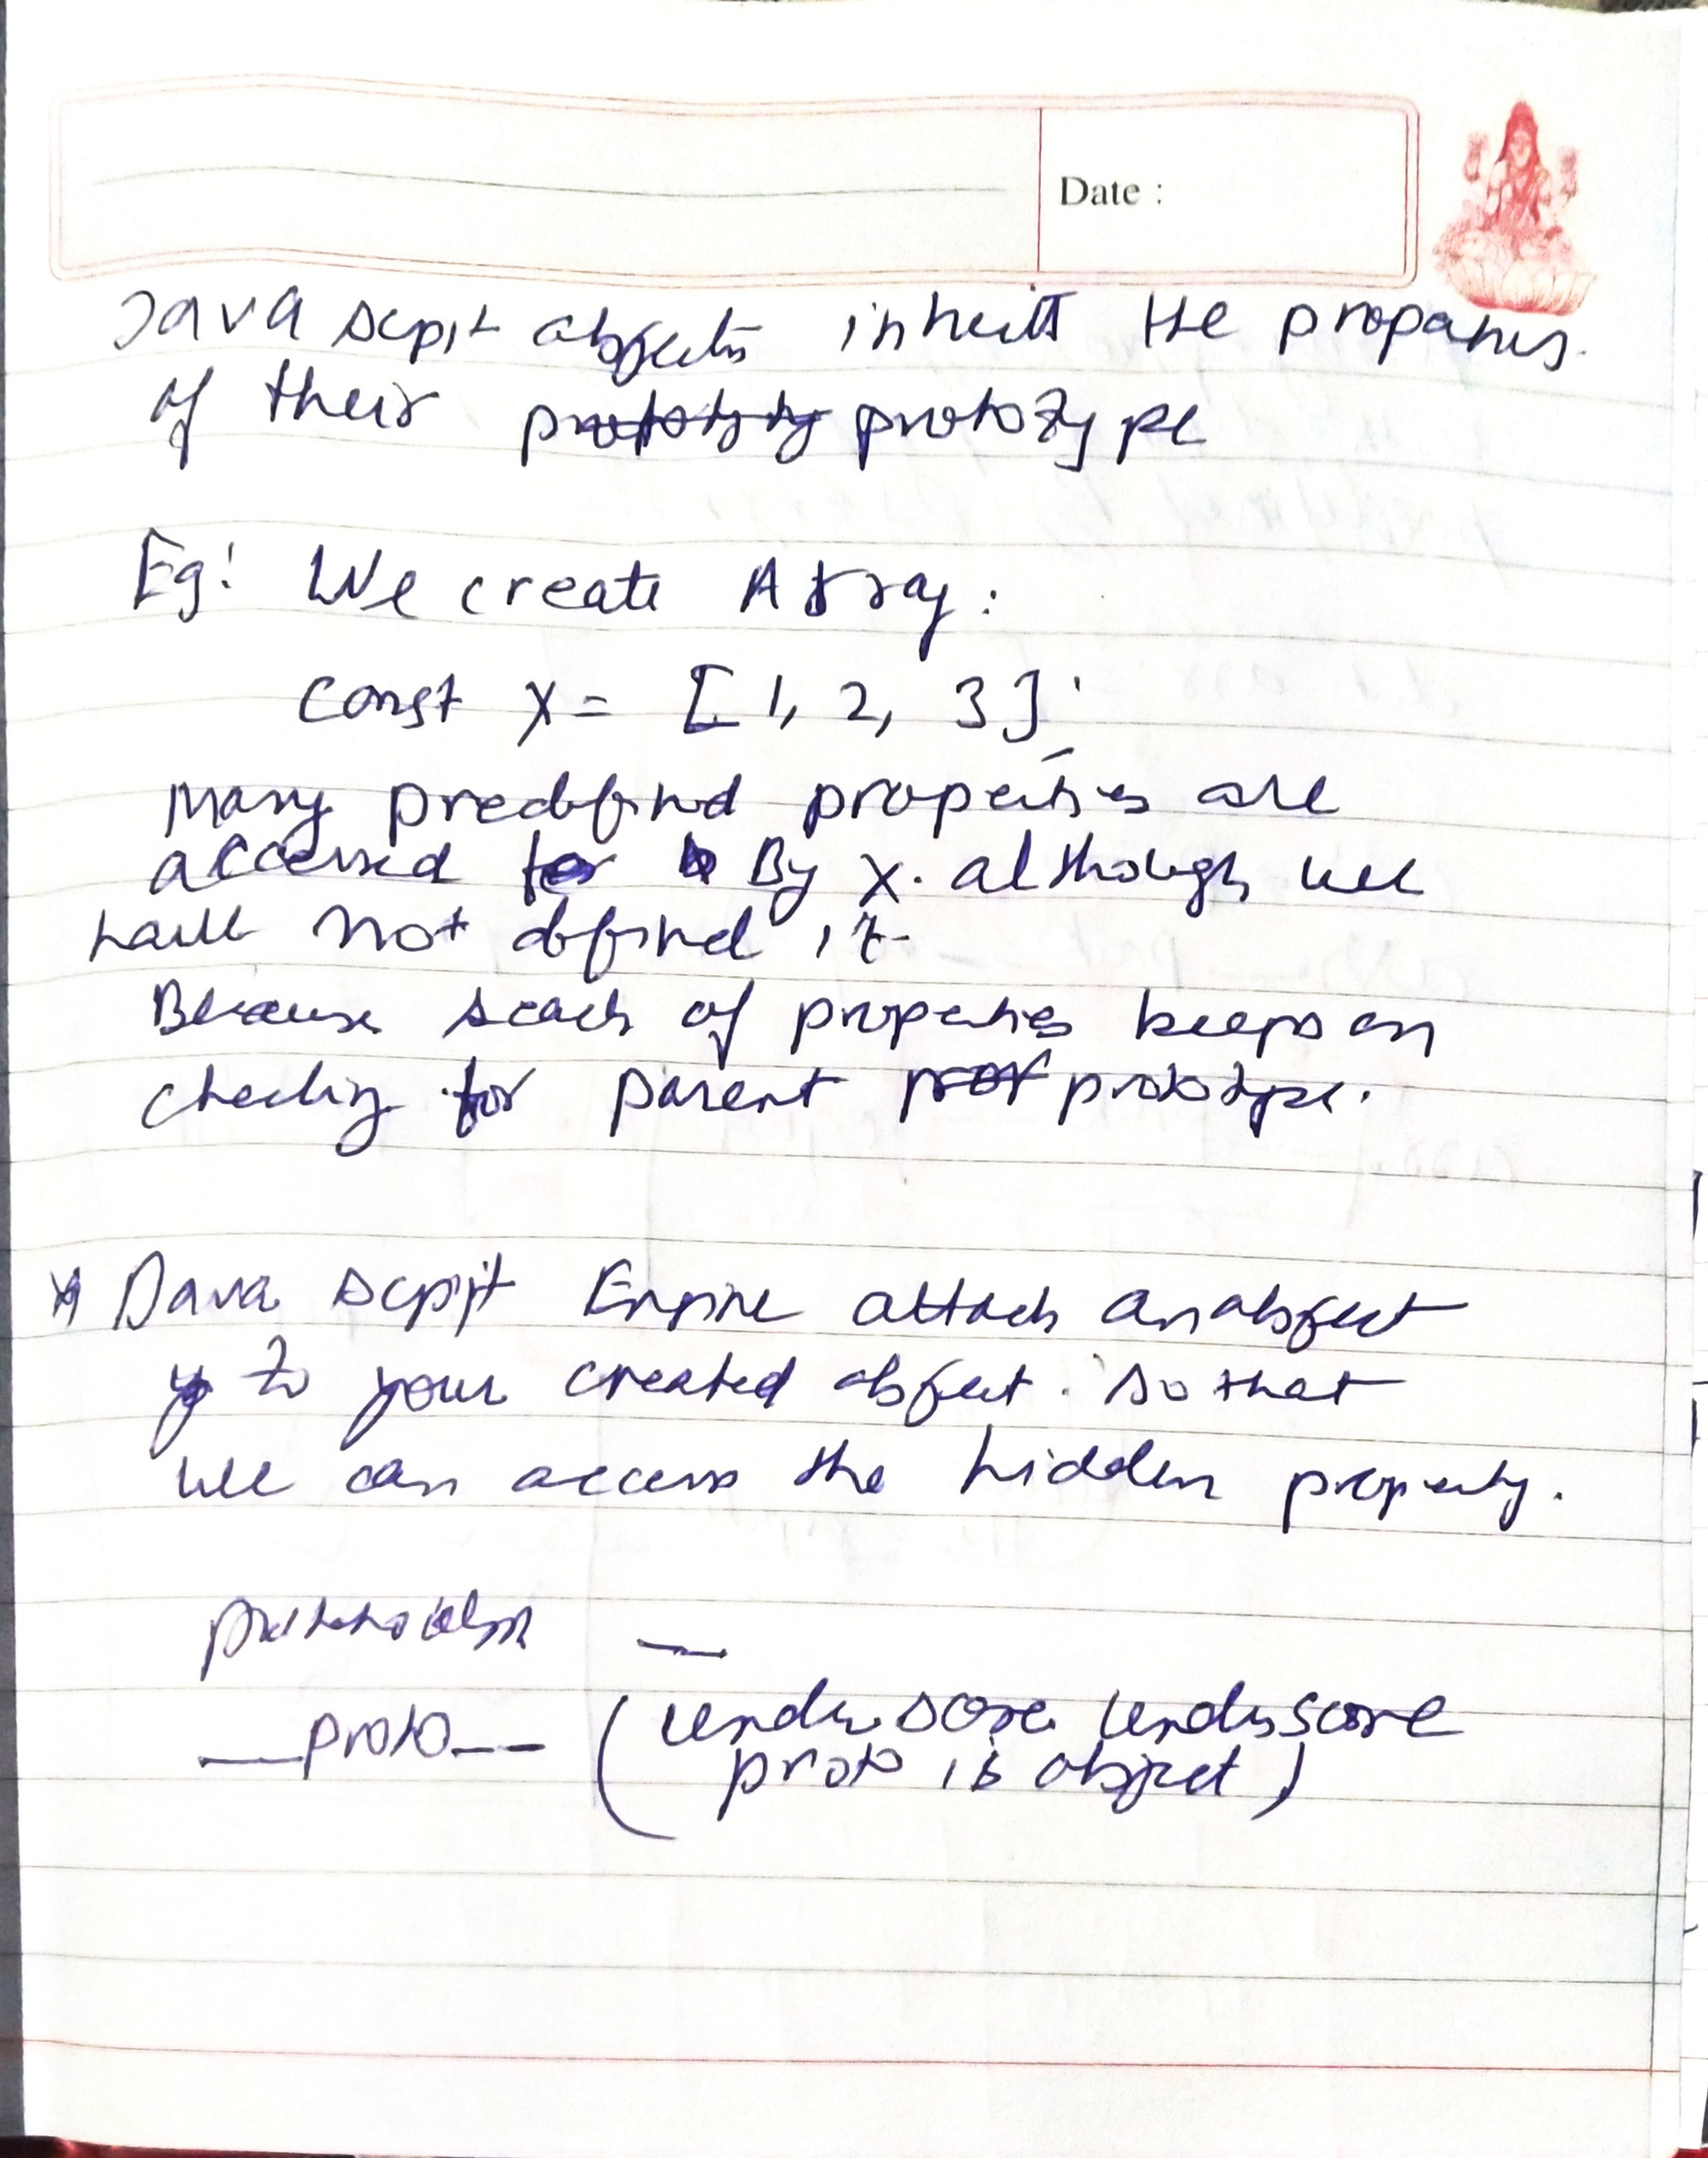 Date :
Java script objects inherit the properties.
of their prototype
Eg: We create Array:
const x = [1, 2, 3];
Many predefined properties are
accessed By x. although we
have not defined it.
Because search of properties keeps on
checking for parent prototype.
* Java script Engine attach an object
to your created object. So that
we can access the hidden property.
—
__proto__ (underscore underscore
proto is object)